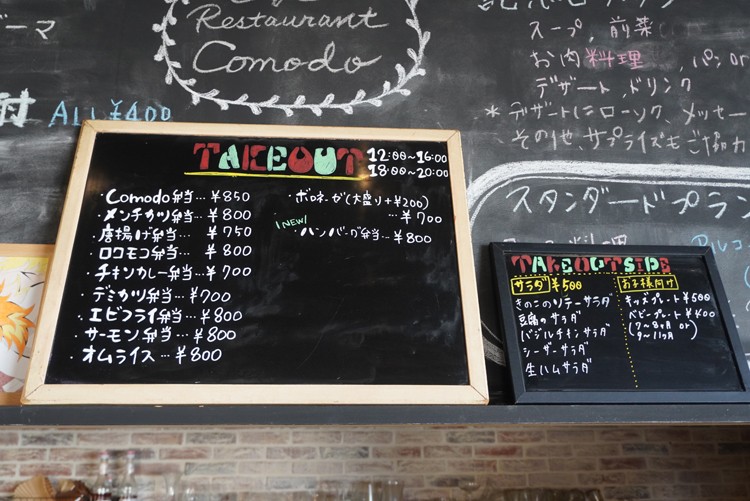 Restaurant
Comodo
ーマ
付 All ¥400
スープ, 前菜
お肉料理, パン or
デザート, ドリンク
*デザートにローソク、メッセー
その他、サプライズもご協力
スタンダードプラン
TAKEOUT 12:00~16:00
18:00~20:00
・Comodo弁当…¥850
・メンチカツ弁当…¥800
・唐揚げ弁当…¥750
・ロコモコ弁当…¥800
・チキンカレー弁当…¥700
・デミカツ弁当…¥700
・エビフライ弁当…¥800
・サーモン弁当…¥800
・オムライス…¥800
・ボロネーゼ(大盛り+¥200)
…¥700
NEW!
・ハンバーグ弁当…¥800
TAKEOUT SIDE
サラダ ¥500
きのこのソテーサラダ
豆腐のサラダ
バジルチキンサラダ
シーザーサラダ
生ハムサラダ
お子様向け
キッズプレート ¥500
ベビープレート ¥400
(7~8ヶ月 or
9~11ヶ月)